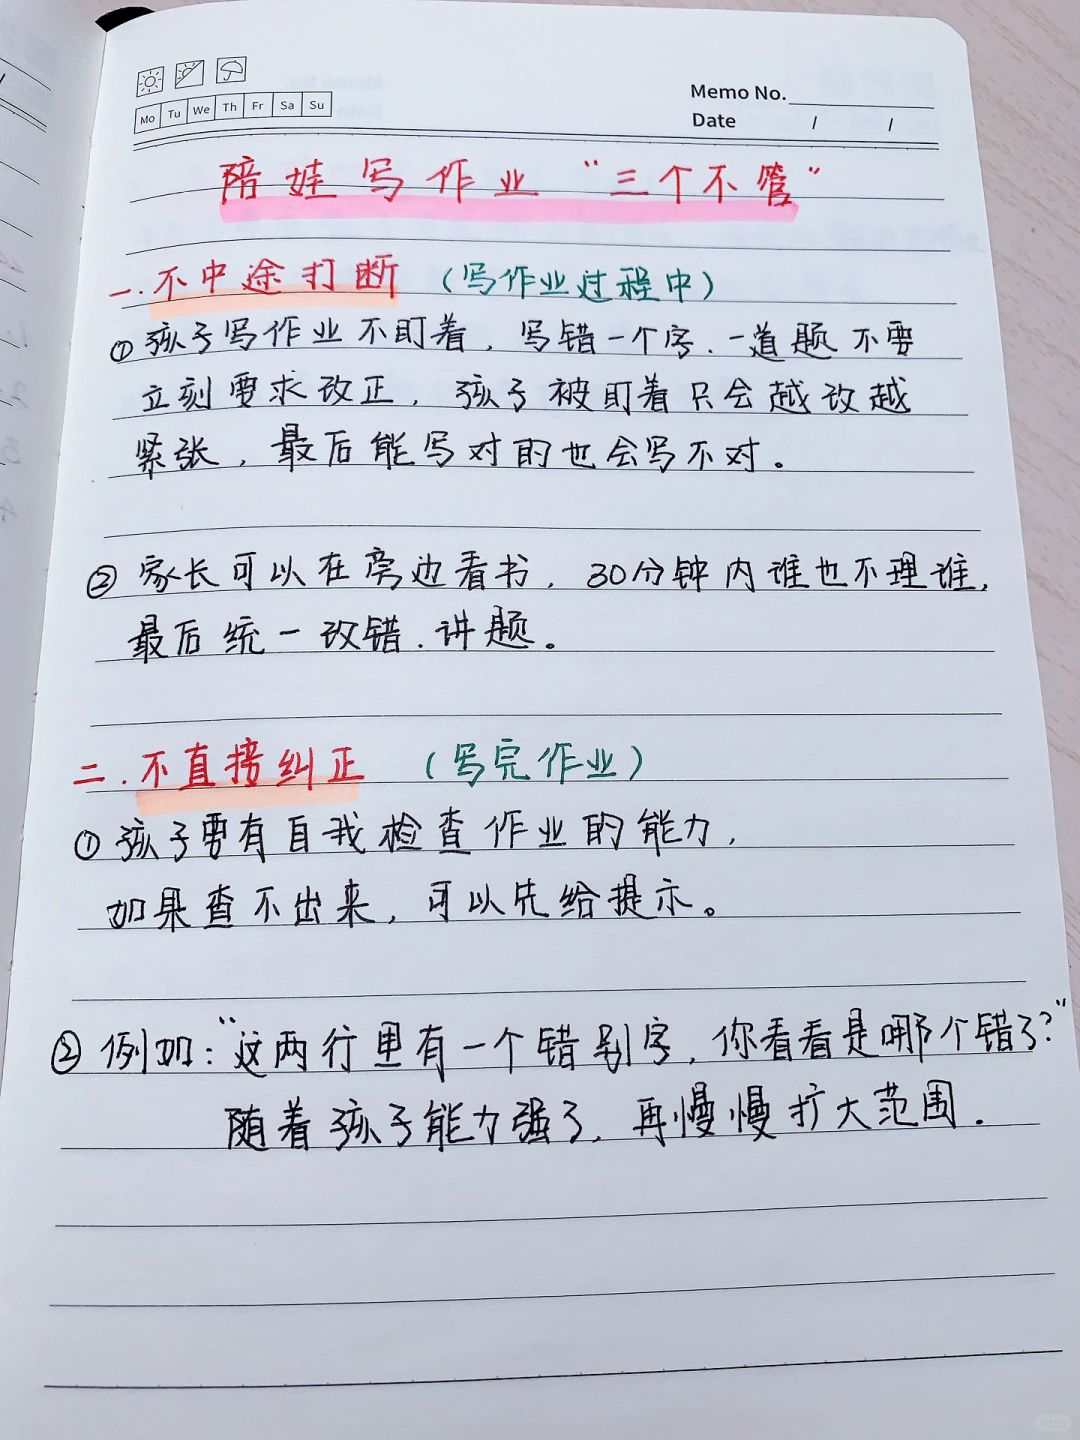 Mo Tu We Th Fr Sa Su
Memo No.
Date / /
陪娃写作业“三个不管”
一.不中途打断（写作业过程中）
①孩子写作业不盯着，写错一个字、一道题不要
立刻要求改正，孩子被盯着只会越改越
紧张，最后能写对的也会写不对。
②家长可以在旁边看书，30分钟内谁也不理谁，
最后统一改错、讲题。
二.不直接纠正（写完作业）
①孩子要有自我检查作业的能力，
如果查不出来，可以先给提示。
②例如：“这两行里有一个错别字，你看看是哪个错了？”
随着孩子能力强了，再慢慢扩大范围.
小红书